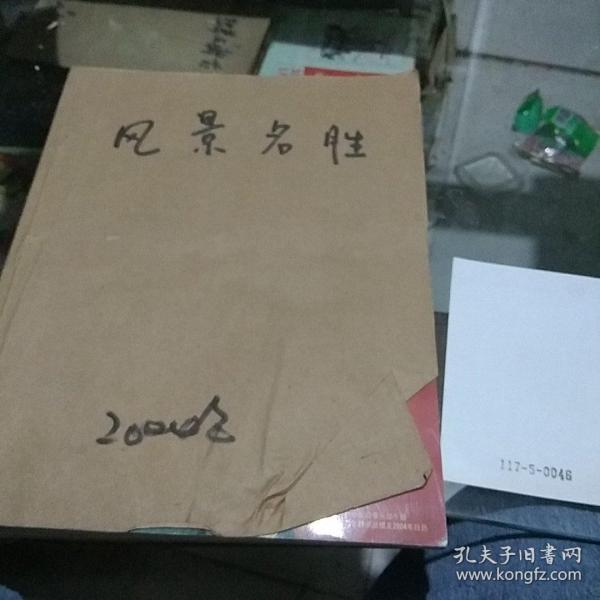 风景名胜
2004全
117-5-0046
孔夫子旧书网
www.kongfz.com